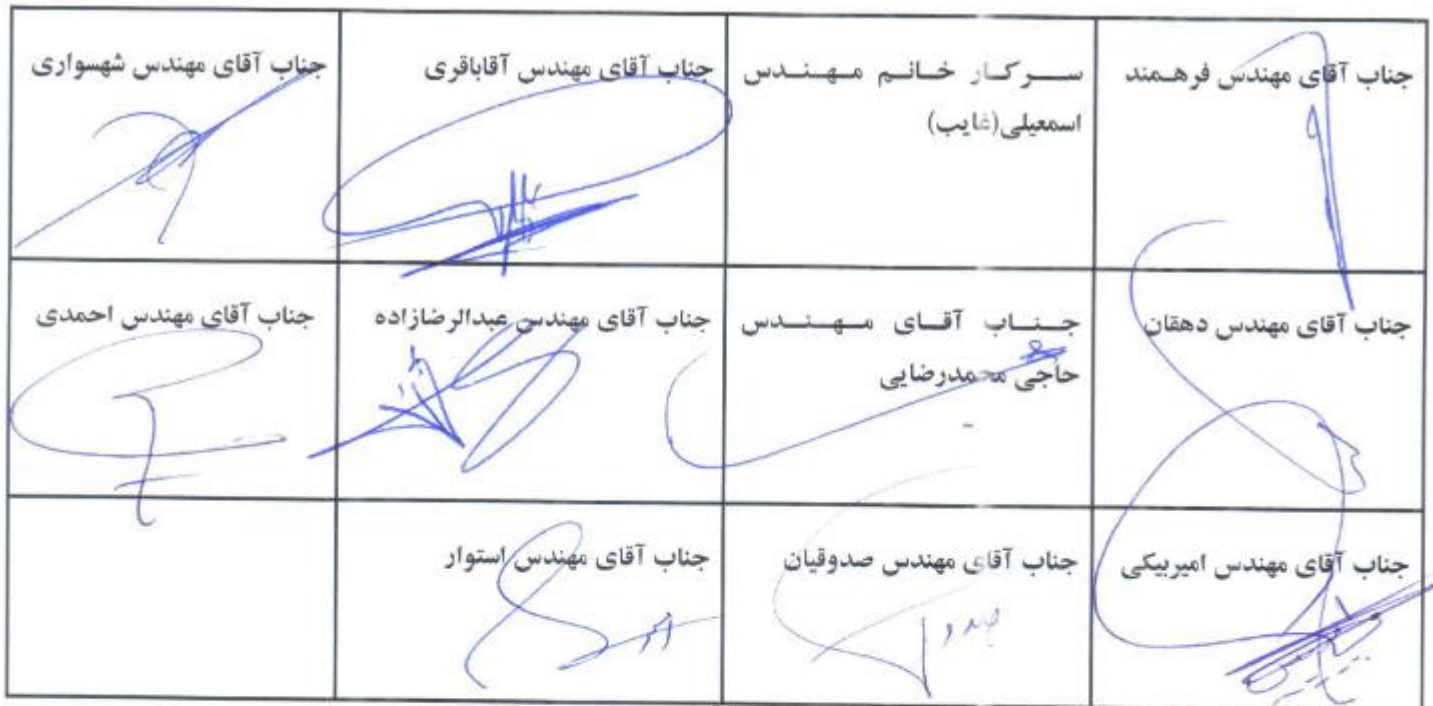 جناب آقای مهندس فرهمند
سرکار خانم مهندس
اسمعیلی(غایب)
جناب آقای مهندس آقاباقری
جناب آقای مهندس شهسواری
جناب آقای مهندس دهقان
جناب آقای مهندس
حاجی محمدرضایی
جناب آقای مهندس عبدالرضازاده
جناب آقای مهندس احمدی
جناب آقای مهندس امیربیکی
جناب آقای مهندس صدوقیان
جناب آقای مهندس استوار